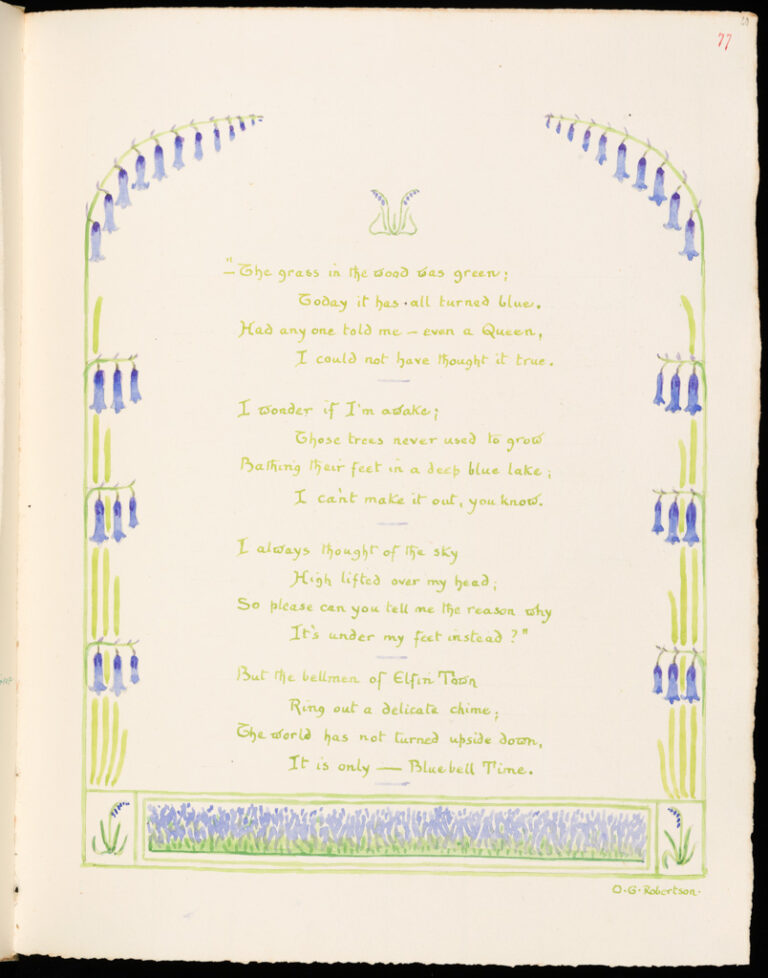 77
"— The grass in the wood was green;
Today it has all turned blue.
Had any one told me — even a Queen,
I could not have thought it true.
I wonder if I'm awake;
Those trees never used to grow
Bathing their feet in a deep blue lake;
I can't make it out, you know.
I always thought of the sky
High lifted over my head;
So please can you tell me the reason why
It's under my feet instead?"
But the bellmen of Elfin Town
Ring out a delicate chime;
The world has not turned upside down,
It is only — Bluebell Time.
O. G. Robertson.